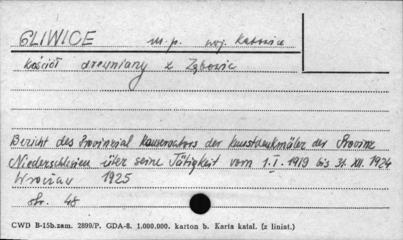 GLIWICE m.p. woj. Katowice
kościół drewniany z Zębowic
Bericht des Provinzial Konservators der Kunstdenkmäler der Provinz
Niederschlesien über seine Tätigkeit vom 1. I. 1919 bis 31. XII. 1924
Wrocław 1925
str. 48
CWD B-15b.zam. 2899/P. GDA-8. 1.000.000. karton b. Karta katal. (z liniat.)